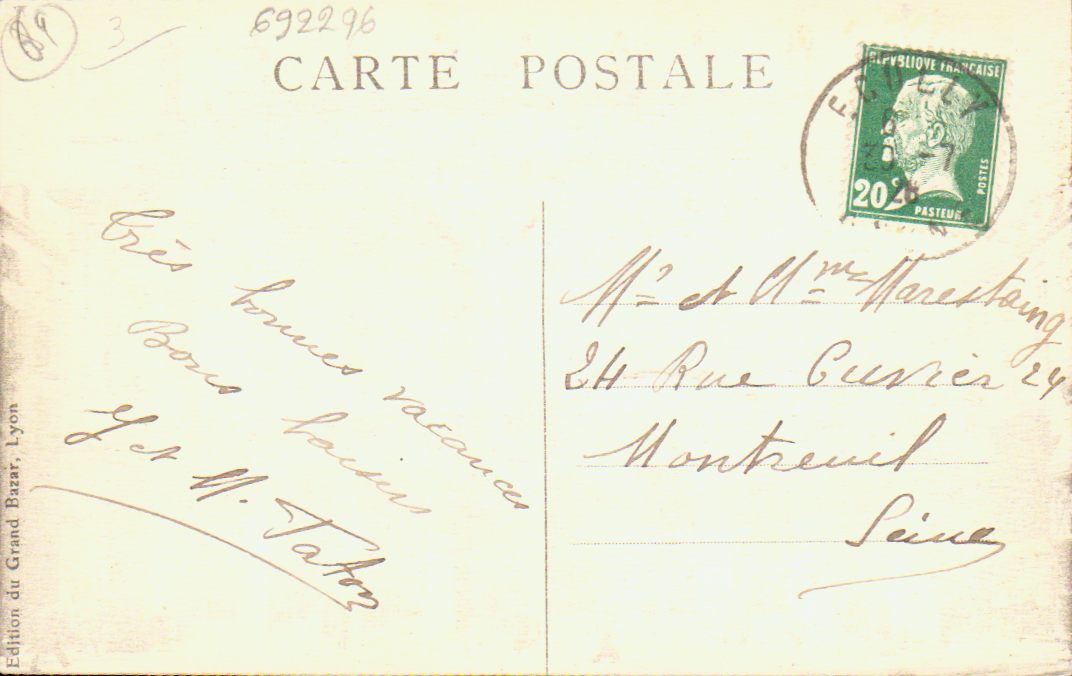 89
3
692296
CARTE POSTALE
REPVBLIQUE FRANÇAISE
20c
PASTEUR
POSTES
ECULLY
6
30 -7
26
Très
bonnes vacances
Bons baisers
et M. Taton
Mr et Mme Marestaing
24 Rue Cuvier 24
Montreuil
Seine
Edition du Grand Bazar, Lyon